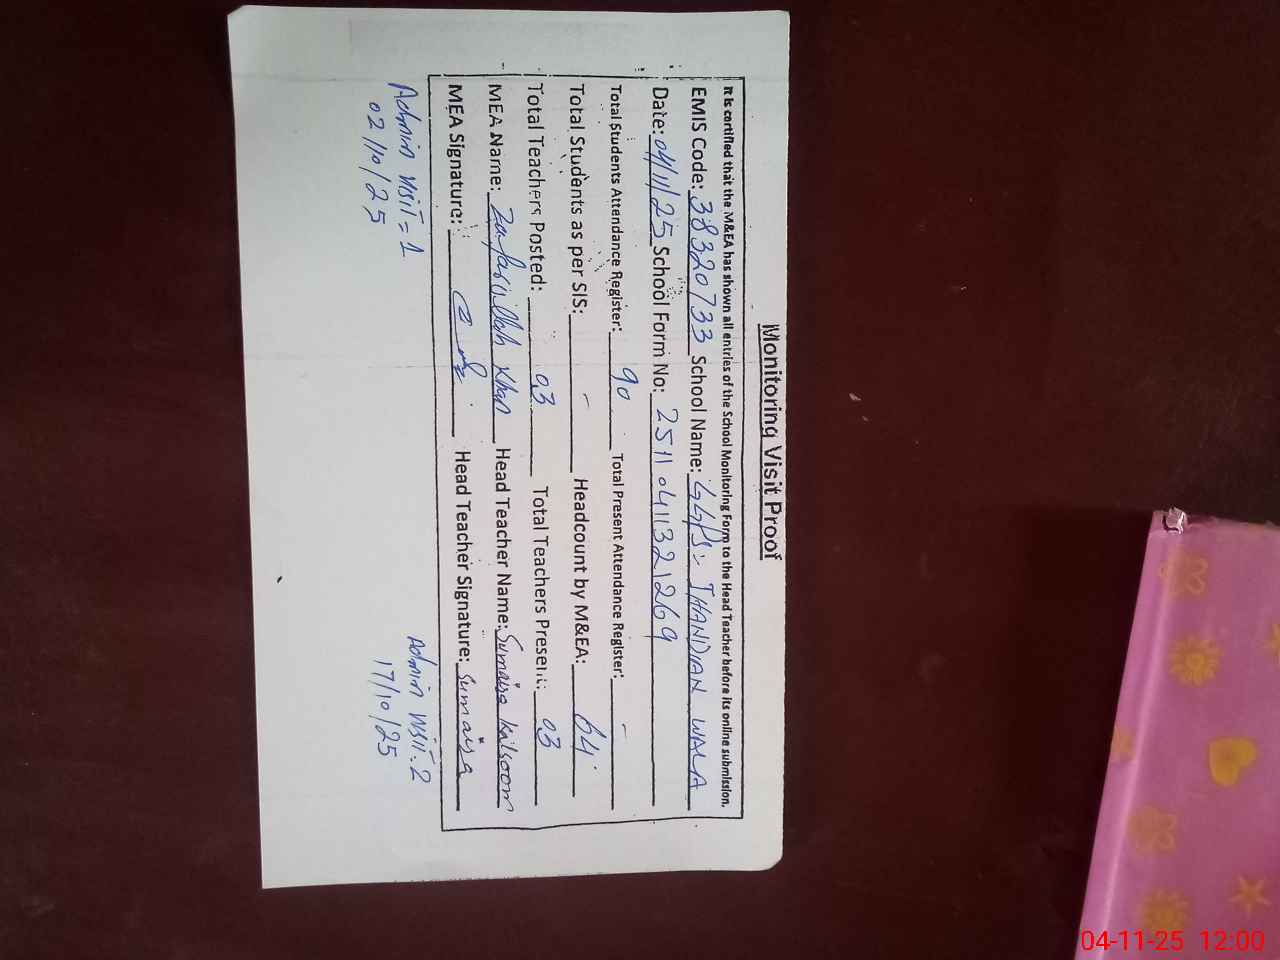 Monitoring Visit Proof
It is certified that the M&EA has shown all entries of the School Monitoring Form to the Head Teacher before its online submission.
EMIS Code: 38320733 School Name: GGPS: THANDIAN WALA
Date: 04/11/25 School Form No: 2511041321269
Total Students Attendance Register: 90 Total Present Attendance Register: -
Total Students as per SIS: - Headcount by M&EA: 64
Total Teachers Posted: 03 Total Teachers Present: 03
MEA Name: Zafarullah Khan Head Teacher Name: Sumaiya Kalsoom
MEA Signature: Head Teacher Signature: Sumaiya
Admin visit = 1
02/10/25
Admin visit: 2
17/10/25
04-11-25 12:00